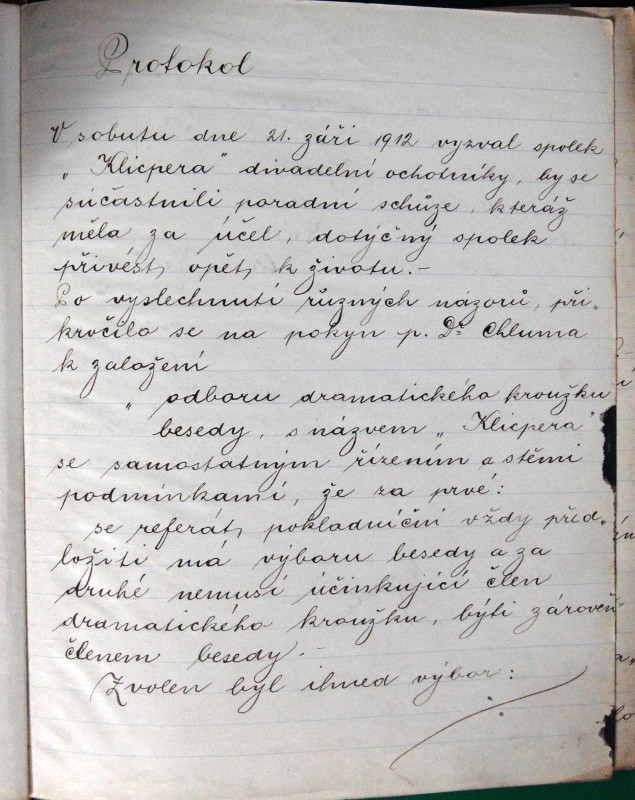 Protokol
V sobutu dne 21. září 1912 vyzval spolek
„Klicpera" divadelní ochotníky, by se
súčastnili poradní schůze, kteráž
měla za účel, dotýčný spolek
přivést, opět, k životu.-
Po vyslechnutí různých názorů, při„
kročilo se na pokyn p. Dr. Chluma
k založení
„ odboru dramatického kroužku
besedy, s názvem „Klicpera"
se samostatným řízením a stěmi
podmínkami, že za prvé:
se referát, pokladniční vždy před„
ložiti má výboru besedy a za
druhé nemusí účinkující člen
dramatického kroužku, býti zároveň
členem besedy.-
Zvolen byl ihned výbor: